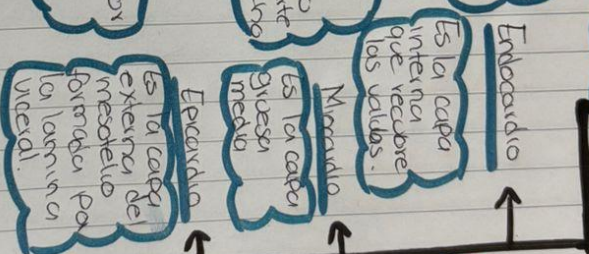 Endocardio
Es la capa
interna
que recubre
las valvas.
Miocardio
Es la capa
gruesa
media
Epicardio
Es la capa
externa de
mesotelio
formada po
la lamina
viceral.